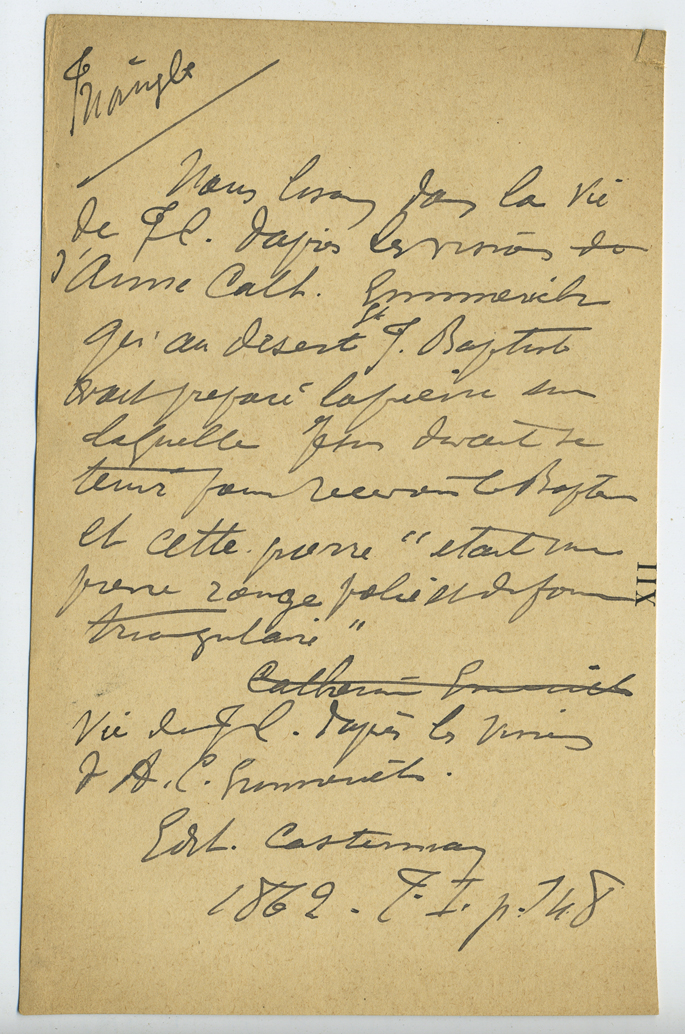 Triangle
Nous lisons dans la Vie
de J.C. d'après les visions de
d'Anne Cath. Emmerich
qu'au désert St J. Baptiste
avait préparé la pierre sur
laquelle Jésus devait se
tenir pour recevoir le Baptême
et cette pierre "était une
pierre rouge polie et de forme
triangulaire"
Catherine Emmerich
Vie de J.C. d'après les Visions
d'A. C. Emmerich.
Edit. Casterman
1862. T. I. p. 148
XII